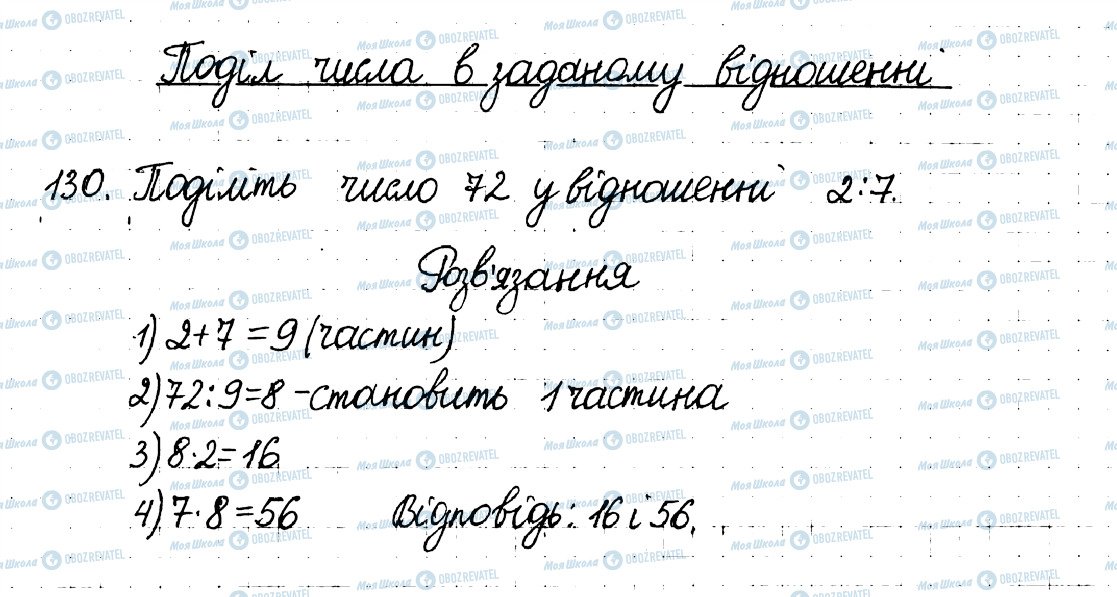 Поділ числа в заданому відношенні
130. Поділіть число 72 у відношенні 2:7.
Розв'язання
1) 2+7=9 (частин)
2) 72:9=8 - становить 1 частина
3) 8·2=16
4) 7·8=56 Відповідь: 16 і 56.
Моя Школа OBOZREVATEL